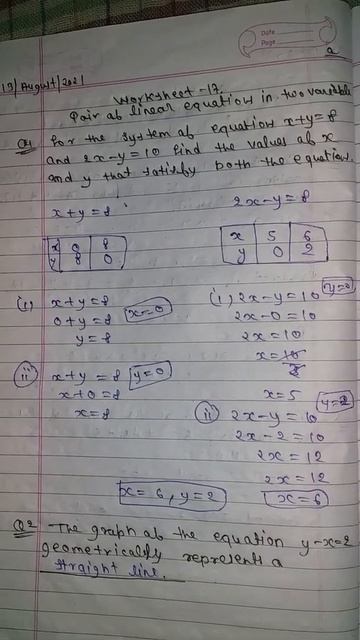 Date
Page
a
13/August/2021
Worksheet-17
Pair ab linear equation in two variable
Q1 for the system ab equation x+y=8
and 2x-y=10 find the values ab x
and y that satisfy both the equation.
x+y=8 2x-y=8
x 0 8
y 8 0
x 5 6
y 0 2
(i) x+y=8 x=0
0+y=8
y=8
(ii) x+y=8 y=0
x+0=8
x=8
(i) 2x-y=10 y=0
2x-0=10
2x=10
x=10/2
x=5
(ii) 2x-y=10 y=2
2x-2=10
2x=12
2x=12
x=6
x=6, y=2
Q2 The graph ab the equation y-x=2
geometrically represent a
straight line.